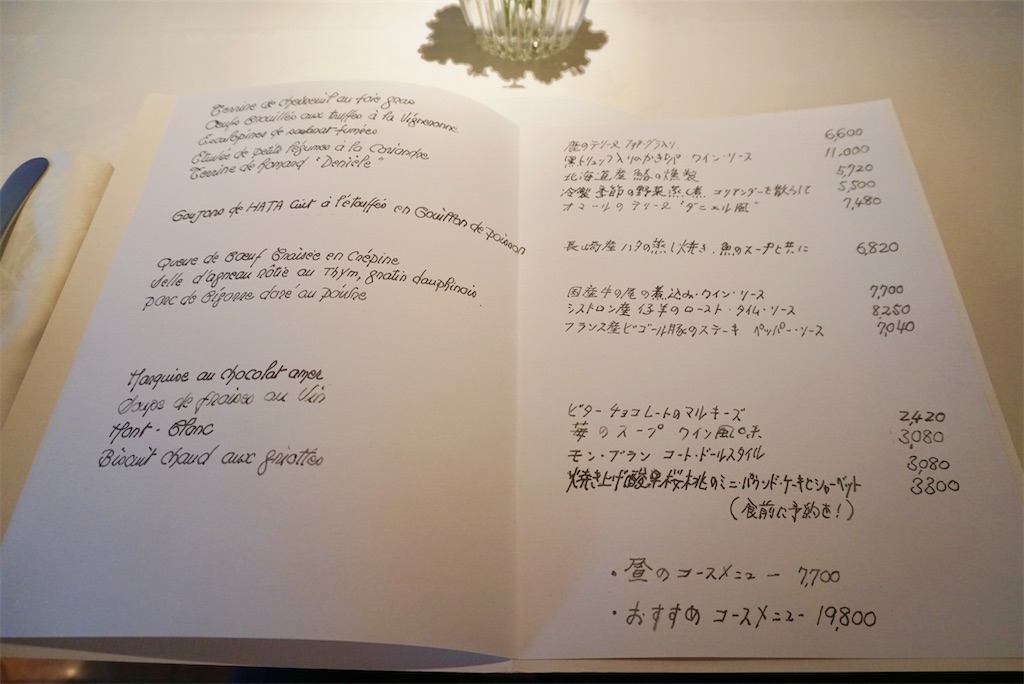 Terrine de chevreuil au foie gras
Oeufs Brouillés aux truffes à la Vigneronne
Escalopines de fumées
Etuvée de petits légumes à la Coriandre
Terrine de Homard "Danièle"
Goujons de HATA Cuit à l'étouffée en Bouillon de poisson
Queue de Bœuf Braisée en Crépine
Selle d'agneau rôtie au Thym, gratin dauphinois
Porc de Bigorre doré au poivre
Marquise au chocolat amer
Soupe de fraises au Vin
Mont-Blanc
Biscuit chaud aux griottes
鹿のテリーヌ フォア・グラ入り 6,600
黒トリュフ入りのかきたまご ワイン・ソース 11,000
北海道産 の燻製 5,720
冷製 季節の野菜蒸し煮 コリアンダーを散らして 5,500
オマールのテリーヌ "ダニエル風" 7,480
長崎産 ハタの蒸し焼き、魚のスープと共に 6,820
国産牛の尾の煮込み・ワイン・ソース 7,700
シストロン産 仔羊のロースト・タイム・ソース 8,250
フランス産ビゴール豚のステーキ ペッパー・ソース 7,040
ビター チョコレートのマルキーズ 2,420
苺のスープ ワイン風味 3,080
モン・ブラン コート・ドールスタイル 3,080
焼き上げ酸果桜桃のミニ・パウンド・ケーキとシャーベット 3300
(食前に予約を!)
・昼のコースメニュー 7,700
・おすすめ コースメニュー 19,800